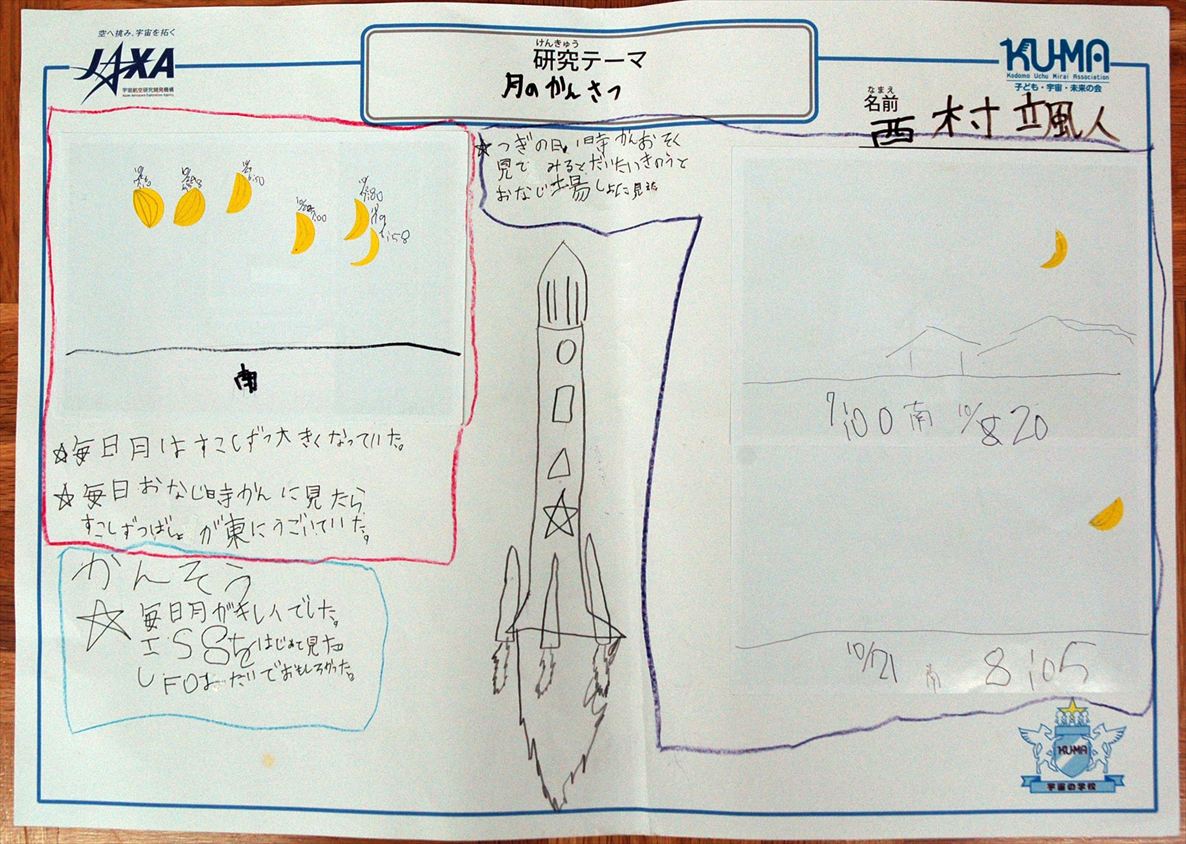 空へ挑み、宇宙を拓く
JAXA
宇宙航空研究開発機構
Japan Aerospace Exploration Agency
けんきゅう
研究テーマ
月のかんさつ
KU-MA
Kodomo Uchu Mirai Association
子ども・宇宙・未来の会
なまえ
名前
西村颯人
南
☆毎日月はすこしずつ大きくなっていた。
☆毎日おなじ時かんに見たら
すこしずつばしょが東にうごいていた。
かんそう
☆毎日月がキレイでした。
ISSをはじめて見た
UFOみたいでおもしろかった。
☆つぎの日、1時かんおそく
見て みるとだいたいきのうと
おなじ場しょに見えた
7:00 南 10/20
10/21 南 8:05
KUMA
宇宙の学校